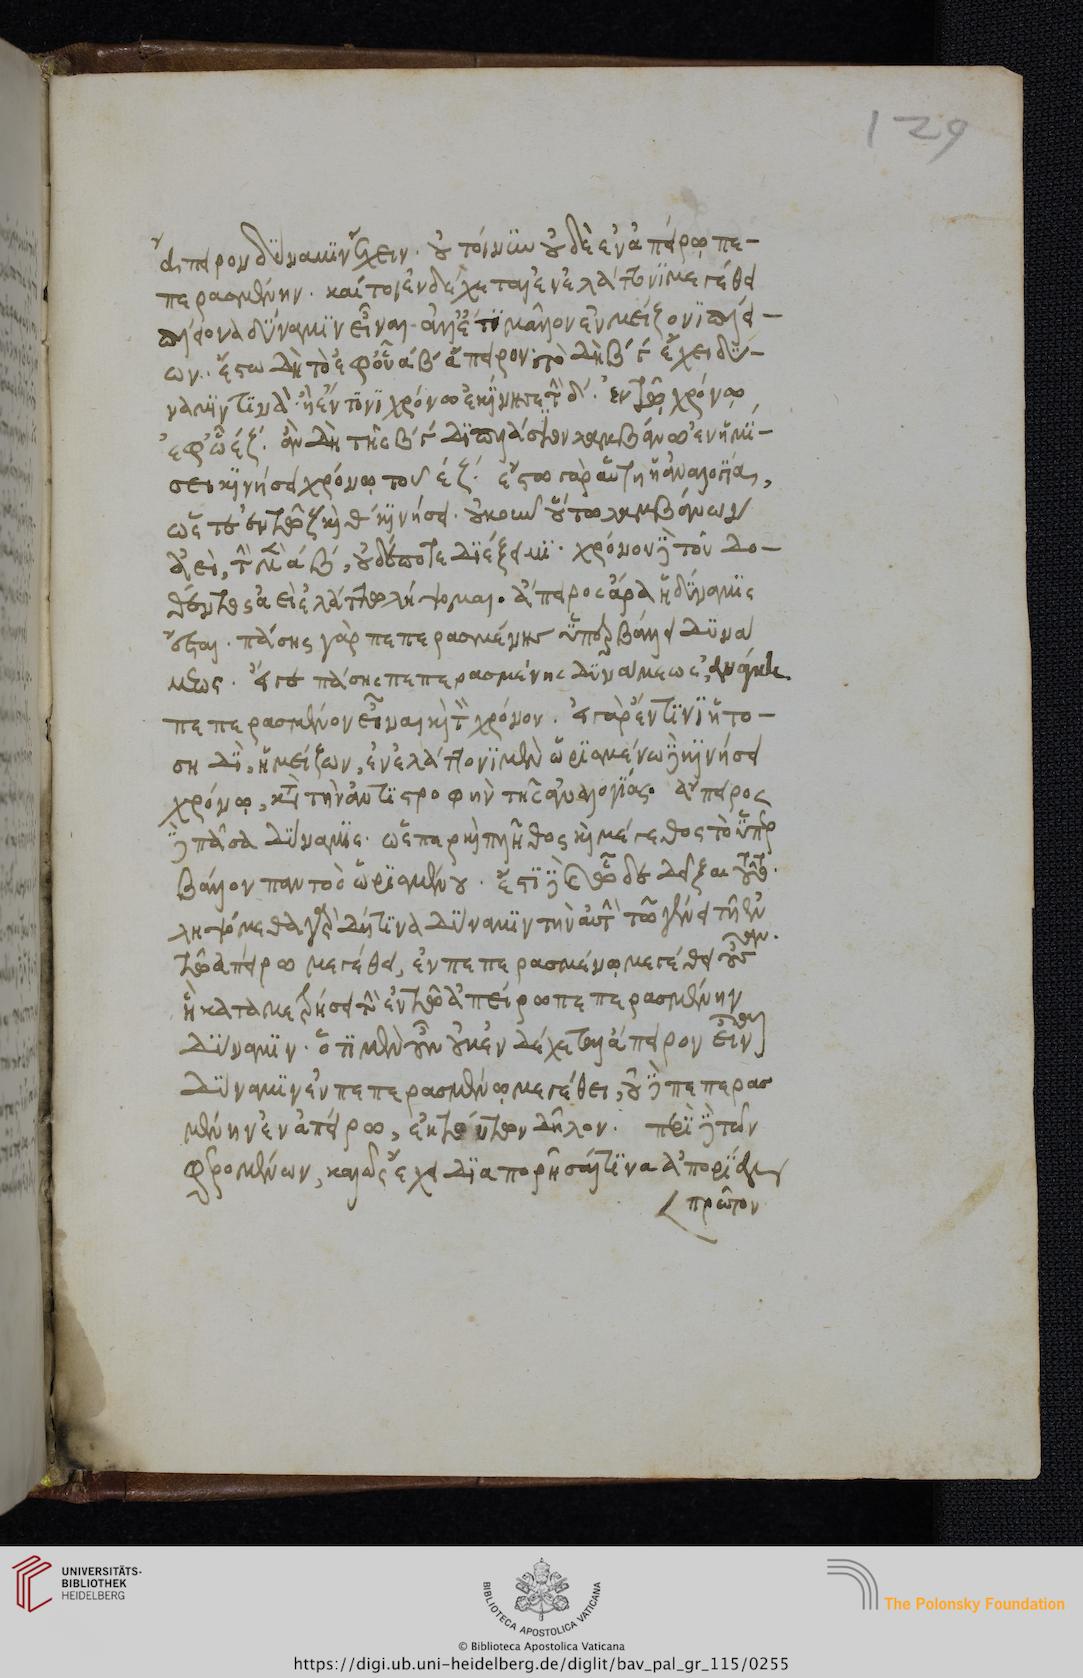 129
ἄπειρον δύναμιν ἔχειν. οὐ τοίνυν οὐδὲ ἐν ἀπείρῳ πε-
περασμένην. καίτοι ἐνδέχεται ἐν ἐλάττονι μεγέθει
πλείονα δύναμιν εἶναι. ἀλλ' ἔτι μᾶλλον ἐν μείζονι πλεί-
ων. ἔστω δὴ τὸ ἐφ' οὗ α β ἄπειρον. τὸ δὴ β γ ἔχει δύ-
ναμιν τινὰ. ἣ ἔν τινι χρόνῳ ἐκίνησε τὴν δ. ἐν τῷ χρόνῳ
ἐφ' ᾧ ε ζ. ἂν δὴ τῆς β γ διπλασίαν λαμβάνω ἐν ἡμί-
σει κινήσει χρόνῳ τοῦ ε ζ. ἔστω γὰρ αὕτη ἡ ἀναλογία,
ὥστε ἐν τῷ ζ θ κινήσει. οὐκοῦν οὕτω λαμβάνων
ἀεὶ, τὴν μὲν α β, οὐδέποτε διέξειμι. χρόνον δὲ τοῦ δο-
θέντος ἀεὶ ἐλάττω λήψομαι. ἄπειρος ἄρα ἡ δύναμις
ἔσται. πάσης γὰρ πεπερασμένης ὑπερβάλλει δυνά
μεως. εἴ γε πάσης πεπερασμένης δυνάμεως, ἀνάγκη
πεπερασμένον εἶναι καὶ τὸν χρόνον. εἰ γὰρ ἔν τινι ἡ το-
σηδὶ, ἡ μείζων, ἐν ἐλάττονι μὲν ὡρισμένῳ δὲ κινήσει
χρόνῳ, κατὰ τὴν ἀντιστροφὴν τῆς ἀναλογίας. ἄπειρος
δὲ πᾶσα δύναμις. ὥσπερ καὶ πλῆθος καὶ μέγεθος τὸ ὑπερ
βάλλον παντὸς ὡρισμένου. ἔστι δὲ καὶ ὧδε δεῖξαι τοῦτο.
ληψόμεθα γὰρ δή τινα δύναμιν τὴν αὐτὴν τῷ γένει τῇ ἐν
τῷ ἀπείρῳ μεγέθει, ἐν πεπερασμένῳ μεγέθει οὖσαν.
ἣ καταμετρήσει τὴν ἐν τῷ ἀπείρῳ πεπερασμένην
δύναμιν. ὅτι μὲν οὖν οὐκ ἐνδέχεται ἄπειρον εἶναι
δύναμιν ἐν πεπερασμένῳ μεγέθει, οὐδὲ πεπερασ
μένην ἐν ἀπείρῳ, ἐκ τούτων δῆλον. περὶ δὲ τῶν
φερομένων, καλῶς ἔχει διαπορῆσαί τινα ἀπορίαν
πρῶτον
UNIVERSITÄTS-
BIBLIOTHEK
HEIDELBERG
BIBLIOTECA APOSTOLICA VATICANA
The Polonsky Foundation
© Biblioteca Apostolica Vaticana
https://digi.ub.uni-heidelberg.de/diglit/bav_pal_gr_115/0255